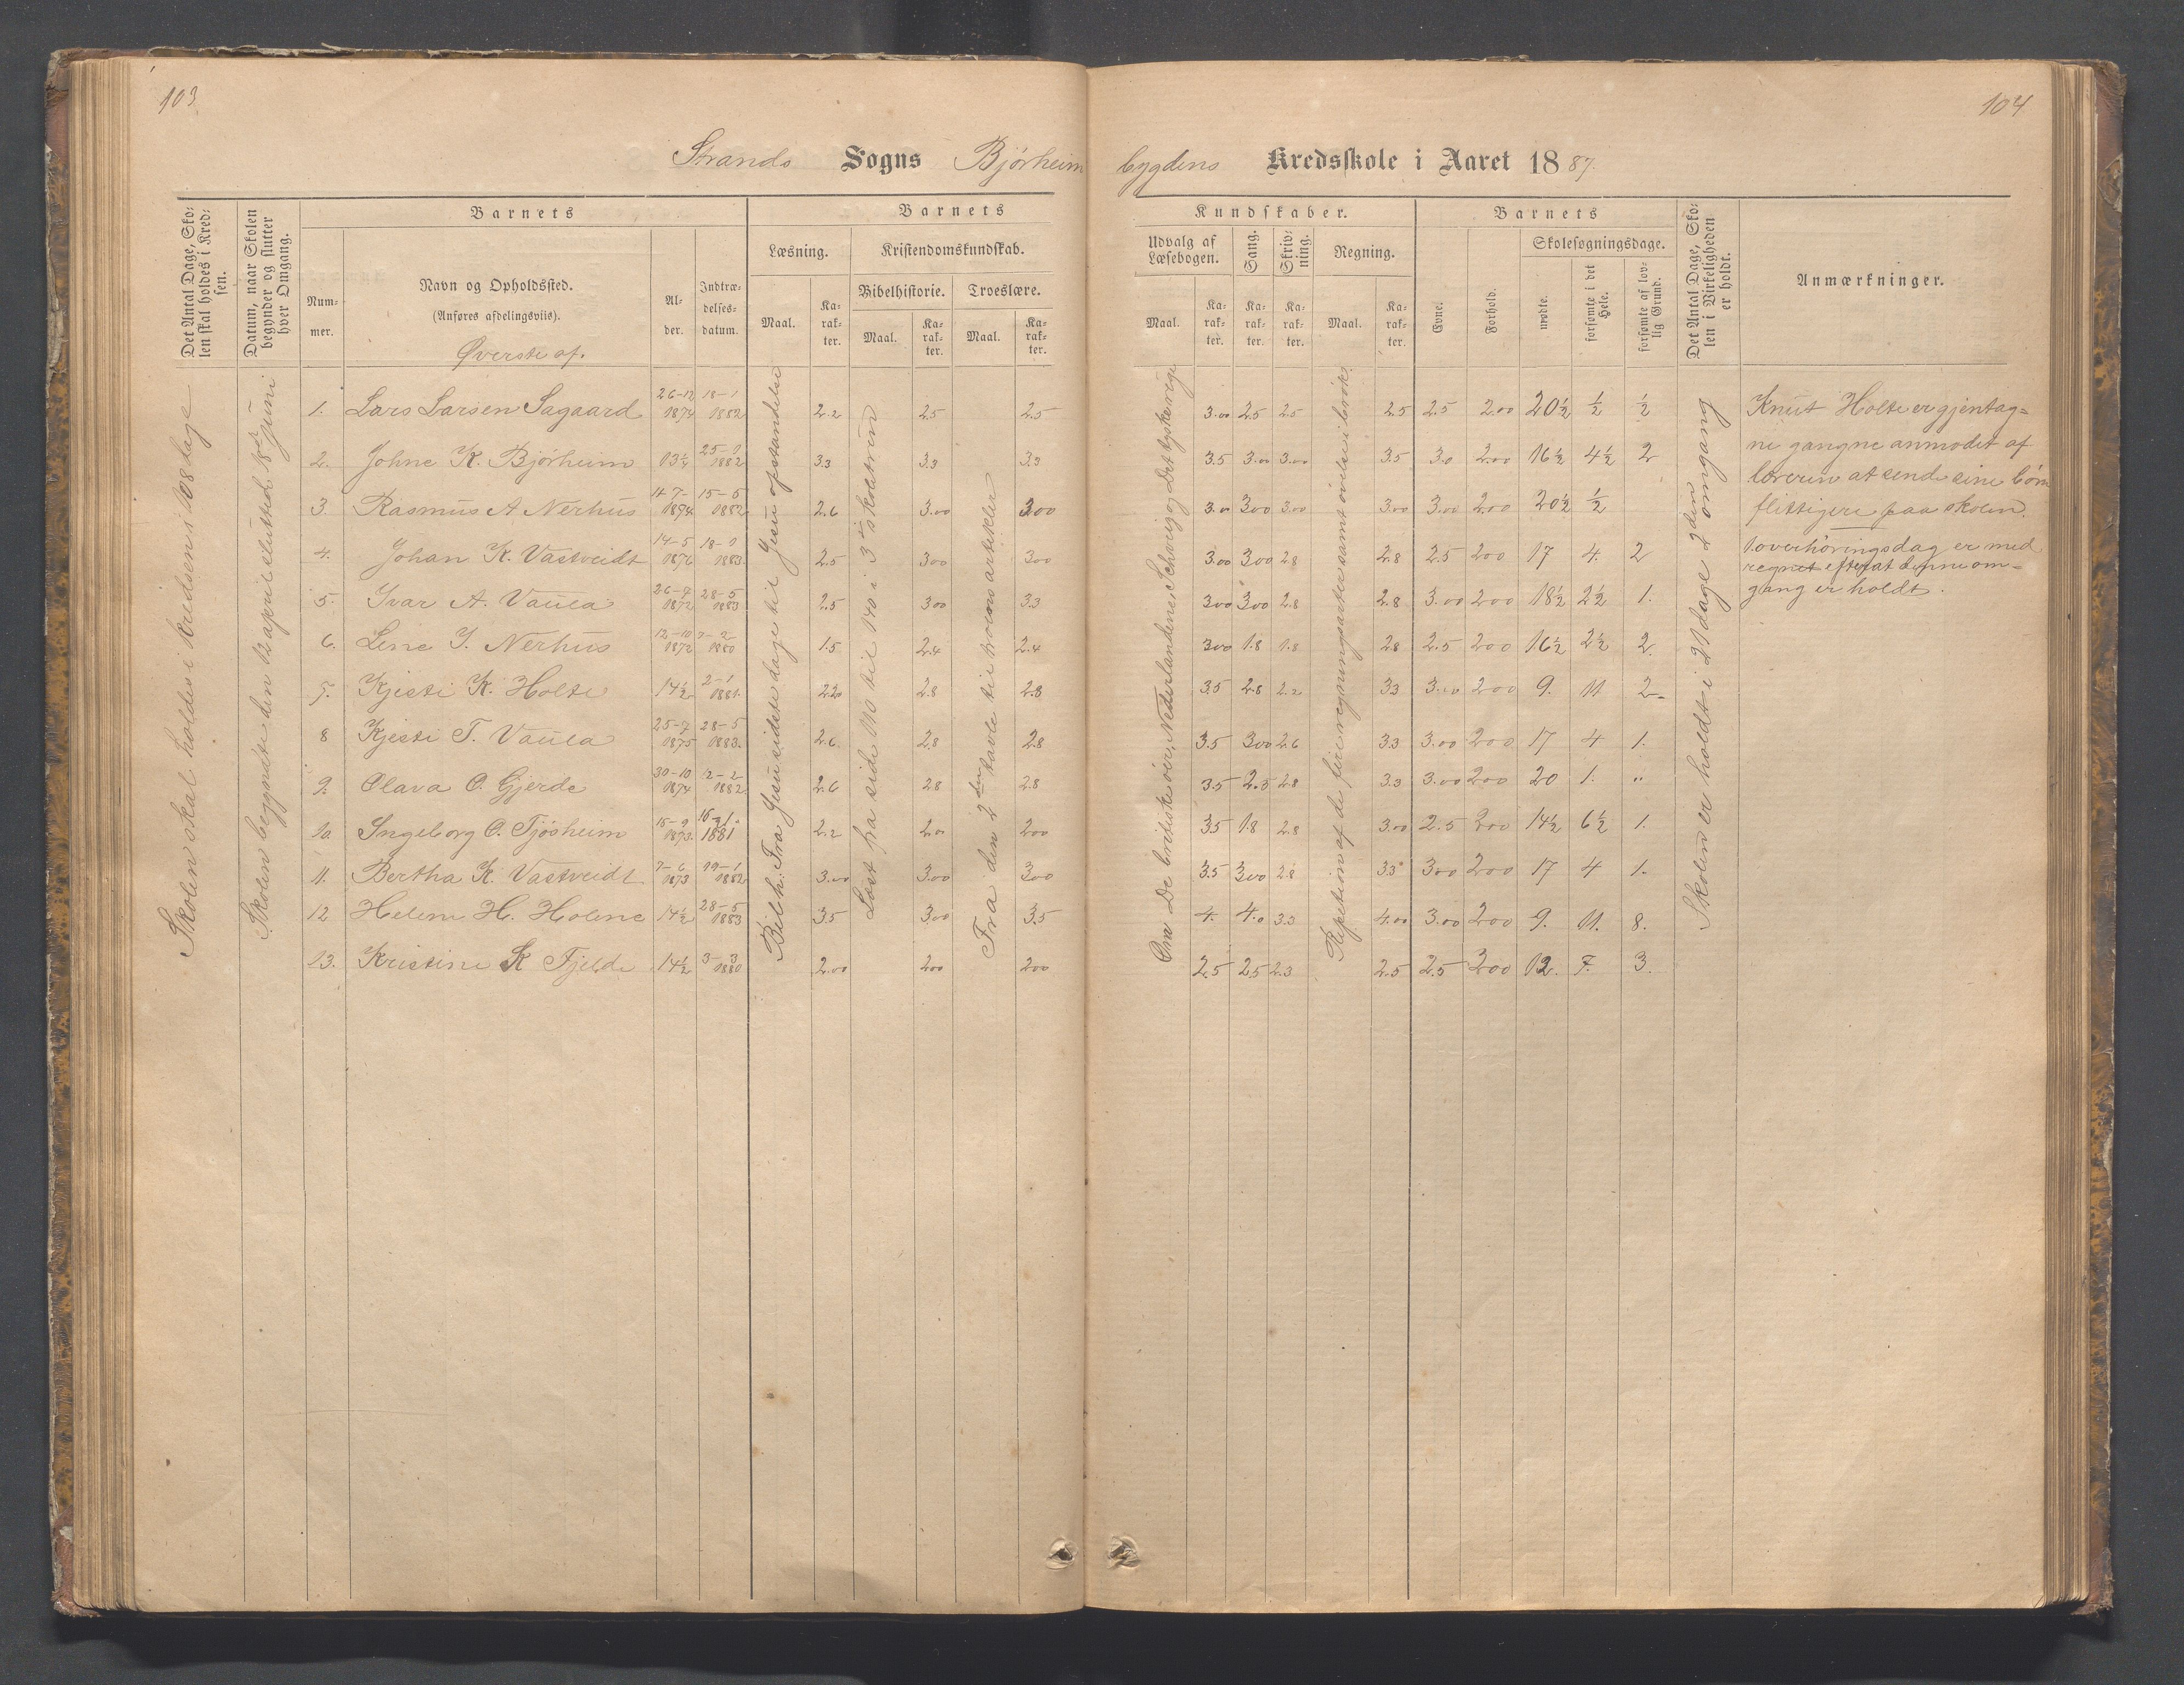 103
104
Strands Sogns Bjørheim
bygdens Kredsskole i Aaret 1887.
Det Antal Dage, Sko-
len skal holdes i Kred-
sen.
Datum, naar Skolen
begynder og slutter
hver Omgang.
Barnets
Num-
mer.
Navn og Opholdssted.
(Anføres afdelingsviis).
Øverste af.
Al-
der.
Indtræ-
delses-
datum.
Barnets
Læsning.
Maal.
Ka-
rak-
ter.
Kristendomskundskab.
Bibelhistorie.
Maal.
Ka-
rak-
ter.
Troeslære.
Maal.
Ka-
rak-
ter.
Kundskaber.
Udvalg af
Læsebogen.
Maal.
Ka-
rak-
ter.
Sang.
Ka-
rak-
ter.
Skriv-
ning.
Ka-
rak-
ter.
Regning.
Maal.
Ka-
rak-
ter.
Barnets
Evne.
Forhold.
Skolesøgningsdage.
mødte.
forsømte i det
Hele.
forsømte af lov-
lig Grund.
Det Antal Dage, Sko-
len i Virkeligheden
er holdt.
Anmærkninger.
Skolen skal holdes i kredsen i 108 dage
Skolen begyndte den 12 april slutted 18de juni
Bibelh. Fra Jesu sidste dage til Jesu opstandelse
Læst fra side 110 til 140 i 3die skoletrin
Fra den 2den tavle til troens artikler
Om De britiske øer, Nederlandene, Schveig og Det tyske rige
Repetition af de fire regningsarter samt øvelse i brøk
Skolen er holdt i 21 dage 2den omgang
1. Lars Larsen Sagaard 26-12 1874 18-1 1882 2.2 2.5 2.5 3.00 2.5 2.5 2.5 2.5 2.00 20½ ½ ½
2. Johne K. Bjørheim 13¼ 25-1 1882 3.3 3.3 3.3 3.5 3.00 3.00 3.5 3.0 2.00 16½ 4½ 2
3. Rasmus A Nerhus 4 7- 1874 15-5 1882 2.6 3.00 3.00 3.00 3.00 3.00 3.00 3.00 2.00 20½ ½
4. Johan K. Vastveidt 14-5 1876 18-1 1883 2.5 3.00 3.00 3.00 3.00 2.8 2.8 2.5 2.00 17 4 2
5. Ivar A. Vaula 26-7 1872 28-5 1883 2.5 3.00 3.3 3.00 3.00 2.8 2.8 3.00 2.00 18½ 2½ 1.
6. Lene I. Nerhus 12-10 1872 7-2 1880 1.5 2.4 2.4 3.00 1.8 1.8 2.8 2.5 2.00 16½ 2½ 2.
7. Kjesti K. Holte 14½ 2-1 1881. 2.20 2.8 2.8 3.5 2.8 2.2 3.3 3.00 2.00 9. 11 2.
8 Kjesti T. Vaula 25-7 1875 28-5 1883. 2.6 2.8 2.8 3.5 3.00 2.6 3.3 3.00 2.00 17 4 1.
9. Olava O. Gjerde 30-10 1874 12-2 1882 2.6 2.8 2.8 3.5 2.5 2.8 3.3 3.00 2.00 20 1. "
10 Ingeborg O. Tjøsheim 15-9 1873. 16-1. 1881 2.2 2.00 2.00 3.5 1.8 2.8 3.00 2.5 2.00 14½ 6½ 1.
11. Bertha K. Vastveidt 7-6 1873 19-1 1882 3.00 3.00 3.00 3.5 3.00 2.8 3.3 3.00 2.00 17 4 1.
12 Helene H. Holene 14½ 28-5 1883 3.5 3.00 3.5 4. 4.0 3.3 4.00 3.00 2.00 9. 11. 8.
13. Kristine K Fjelde 14½ 3-3 1880 2.00 2.00 2.00 2.5 2.5 2.3 2.5 2.5 2.00 12. 7. 3.
Knut Holte er gjentag-
ne gangne anmodet af
læreren at sende sine børn
flittigere paa skolen.
1 overhøringsdag er med
regnet efterat denne om-
gang er holdt.